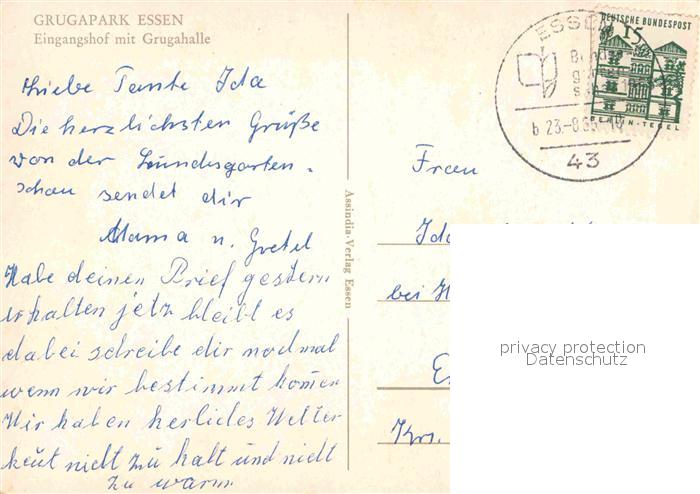 GRUGAPARK ESSEN
Eingangshof mit Grugahalle
Liebe Tante Ida
Die herzlichsten Grüße
von der Bundesgarten-
schau sendet dir
Mama u. Gretel
Habe deinen Brief gestern
erhalten jetz bleibt es
dabei schreibe dir nochmal
wenn wir bestimmt kom̄en
Wir haben herliches Wetter
heut nicht zu kalt und nicht
zu warm
Assindia-Verlag Essen
ESSEN
b 23.-8.65
43
DEUTSCHE BUNDESPOST
15
BERLIN-TEGEL
Frau
Ida
bei
Krs.
privacy protection
Datenschutz